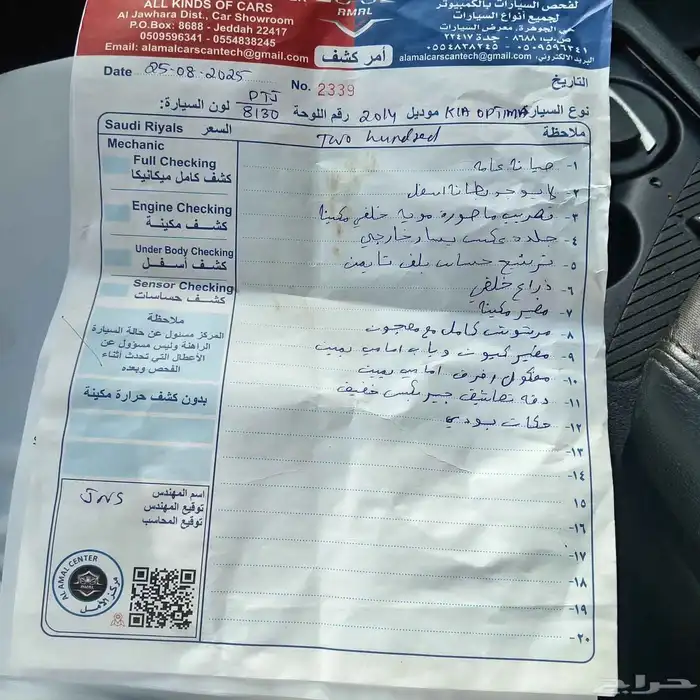 ALL KINDS OF CARS
Al Jawhara Dist., Car Showroom
P.O.Box: 8688 - Jeddah 22417
0509596341 - 0554838245
Email: alamalcarscantech@gmail.com
AMAL
أمر كشف
لفحص السيارات بالكمبيوتر
لجميع أنواع السيارات
حي الجوهرة، معرض السيارات
ص.ب: ٨٦٨٨ - جدة ٢٢٤١٧
٠٥٠٩٥٩٦٣٤١ - ٠٥٥٤٨٣٨٢٤٥
البريد الالكتروني: alamalcarscantech@gmail.com
Date 25.08.2025
No. 2339
التاريخ
نوع السيارة KIA OPTIMA موديل 2014 رقم اللوحة 8130 لون السيارة:
Saudi Riyals السعر
Two hundred
ملاحظة
Mechanic
Full Checking
كشف كامل ميكانيكا
Engine Checking
كشف مكينة
Under Body Checking
كشف أسفل
Sensor Checking
كشف حساسات
ملاحظة
المركز مسئول عن حالة السيارة
الراهنة وليس مسؤول عن
الأعطال التي تحدث أثناء
الفحص وبعده
بدون كشف حرارة مكينة
١- صيانة عامه
٢- لا يوجد بطانة اسفل
٣- تهريب ماصورة مويه خلفي مكينة
٤- جلده عكس يسار خارجي
٥- ترشيح حساس بلف تايمن
٦- ذراع خلفي
٧- مكينة
٨- مرشوش كامل مع معجون
٩- كبوت وباب امامي يمين
١٠- مفكوك رفرف امامي يمين
١١- خفيف
١٢- حكات بودي
١٣-
١٤-
١٥
١٦-
١٧-
١٨-
١٩-
٢٠-
اسم المهندس
توقيع المهندس
توقيع المحاسب
AL AMAL CENTER
مركز الأمل
حراج